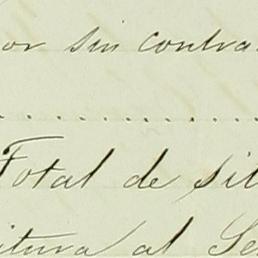 or sin contra
..............
Total de sil
itura al Se